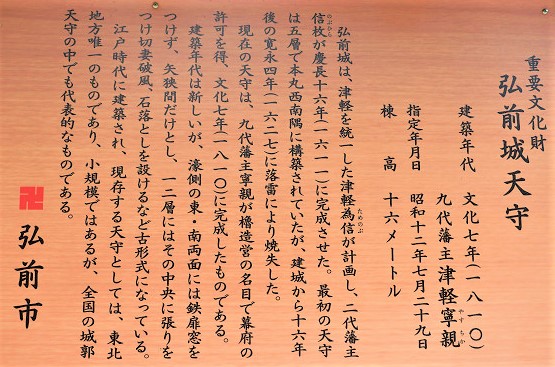 重要文化財
弘前城天守
建築年代　文化七年(一八一〇)
九代藩主津軽寧親
やすちか
指定年月日　昭和十二年七月二十九日
棟高　十六メートル
弘前城は、津軽を統一した津軽為信が計画し、二代藩主
ためのぶ
信枚が慶長十六年(一六一一)に完成させた。最初の天守
のぶひら
は五層で本丸西南隅に構築されていたが、建城から十六年
後の寛永四年(一六二七)に落雷により焼失した。
現在の天守は、九代藩主寧親が櫓造営の名目で幕府の
許可を得、文化七年(一八一〇)に完成したものである。
建築年代は新しいが、濠側の東・南両面には鉄扉窓を
つけず、矢狭間だけとし、一二層にはその中央に張りを
つけ切妻破風、石落としを設けるなど古形式になっている。
江戸時代に建築され、現存する天守としては、東北
地方唯一のものであり、小規模ではあるが、全国の城郭
天守の中でも代表的なものである。
卍 弘前市